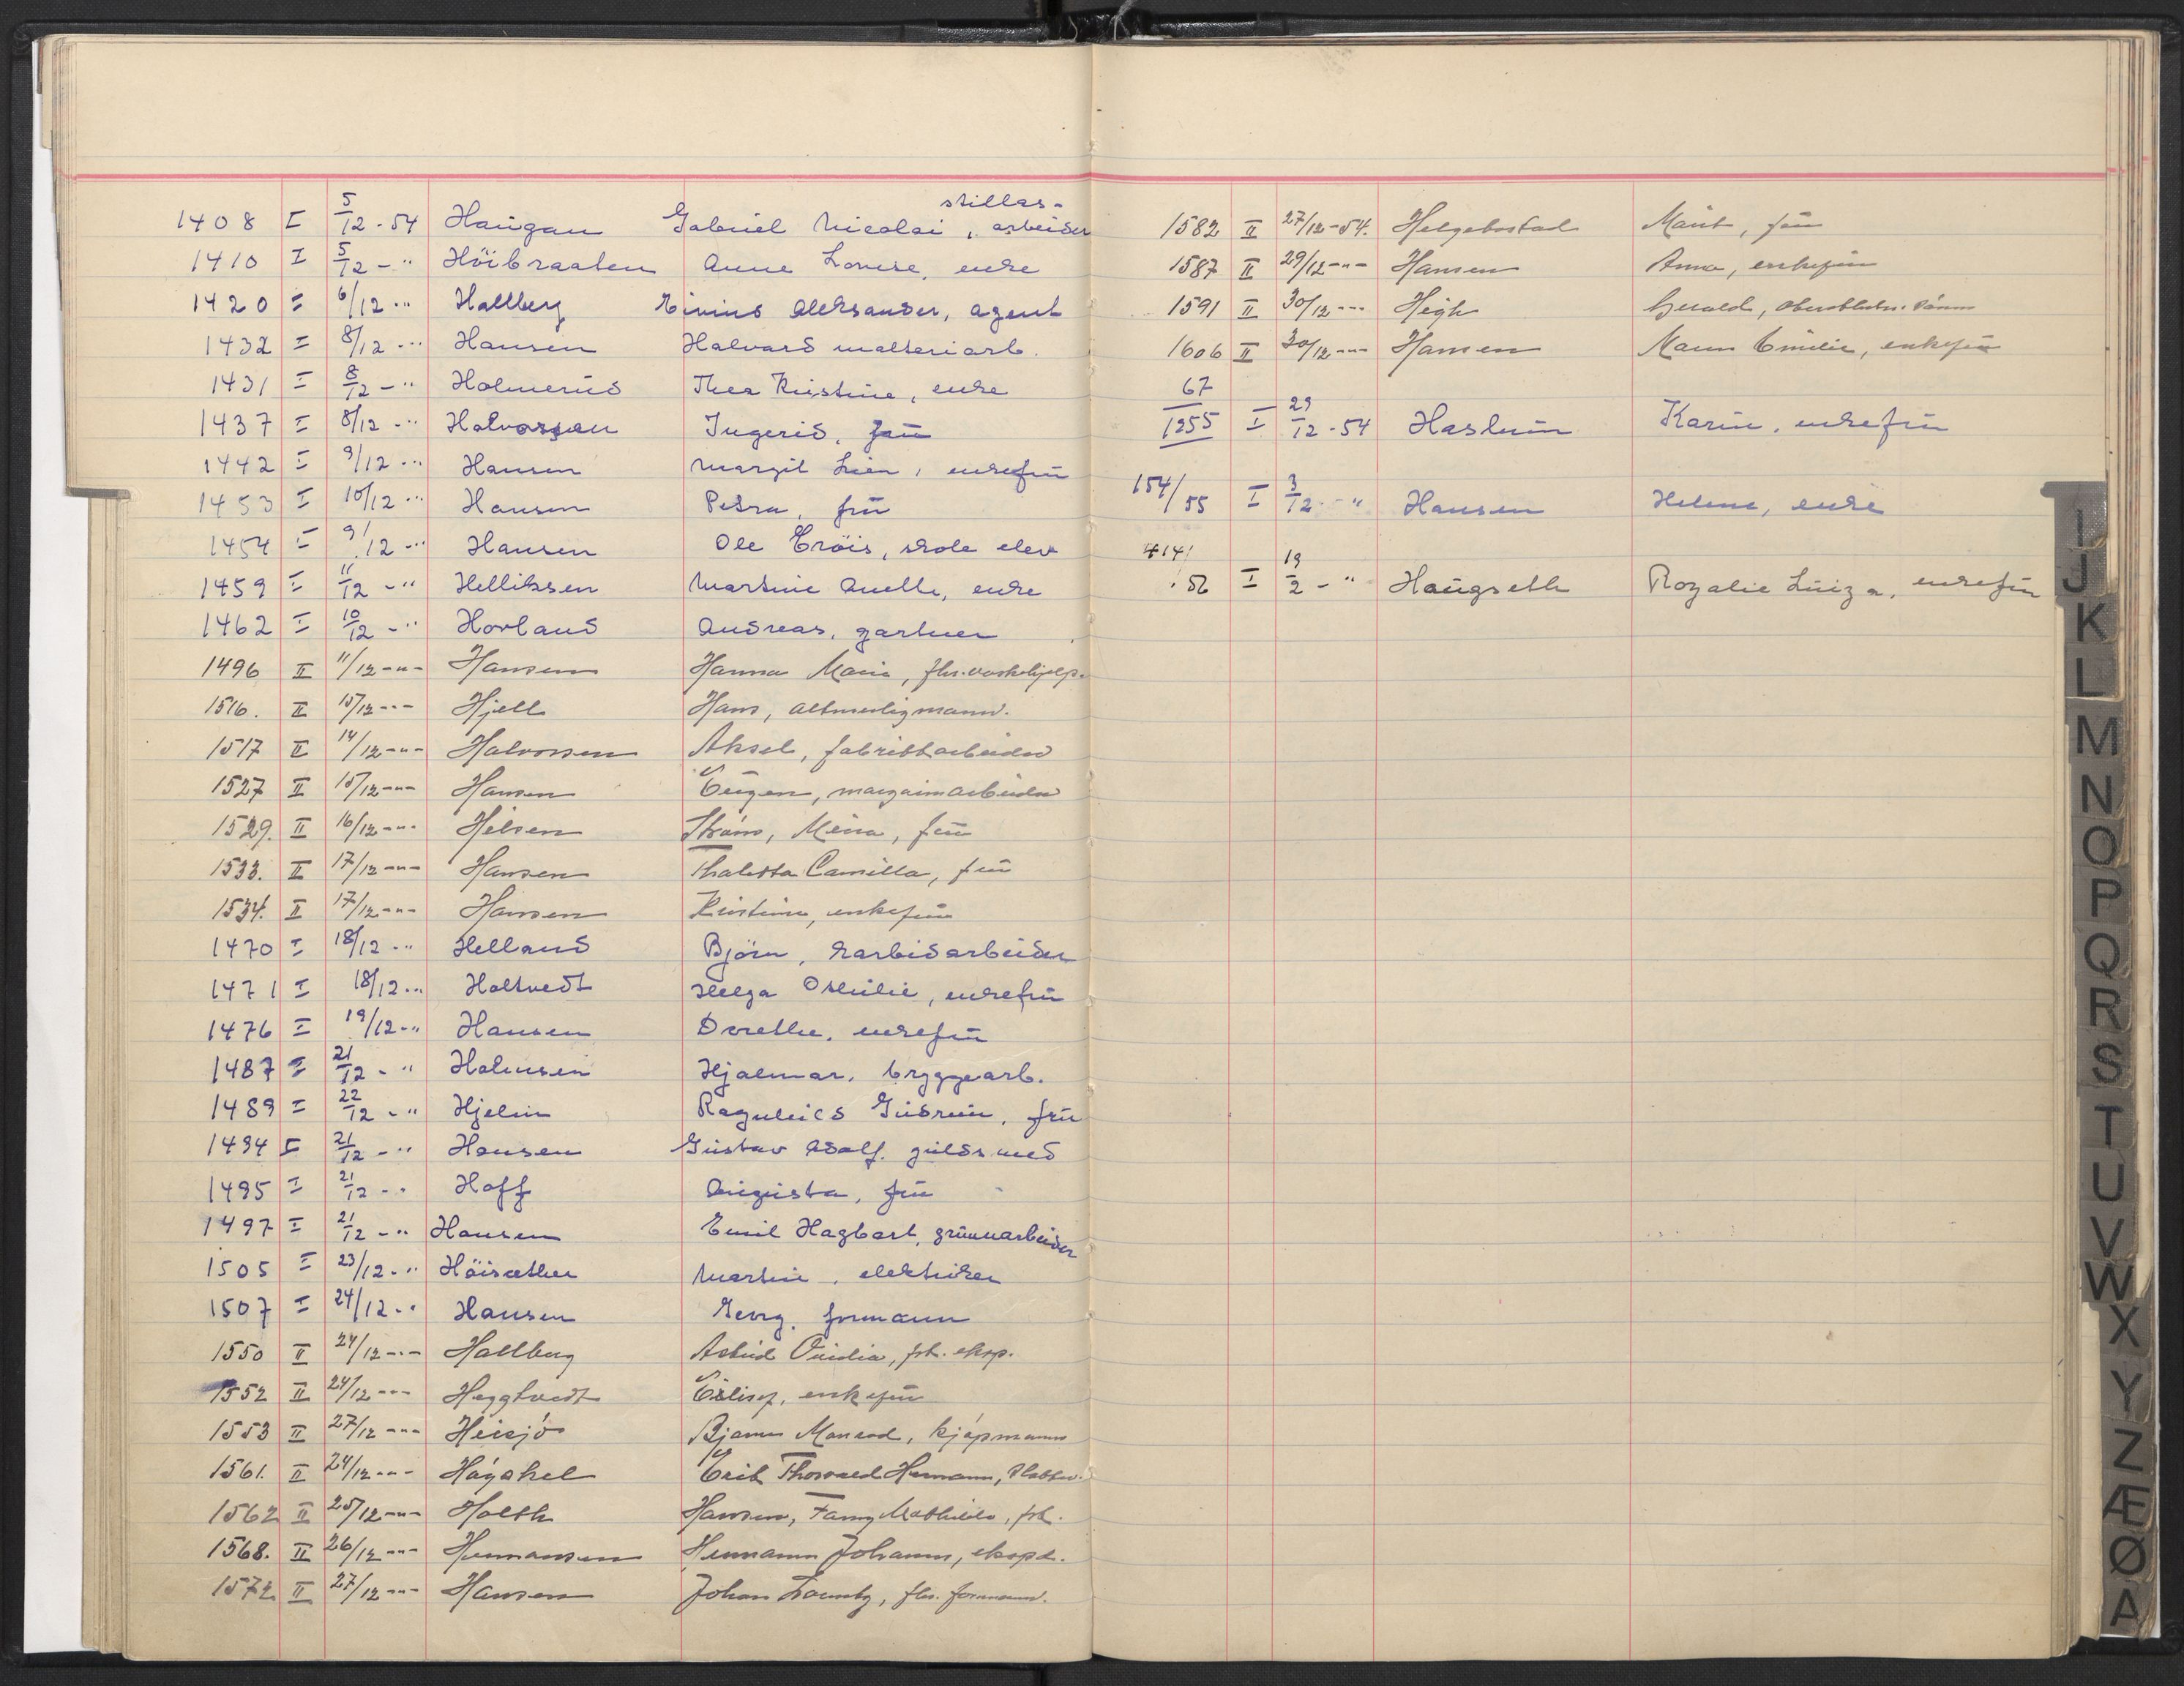 stillas-
1408 I 5/12-54 Haugan Gabriel Nicolai, arbeider
1410 I 5/12-" Höibraaten Anne Lovise, enke
1420 I 6/12-" Hallberg Eivind Aleksander, agent
1432 I 8/12-" Hansen Halvard malteriarb.
1431 I 8/12-" Holmerud Thea Kristine, enke
1437 I 8/12-" Halvorsen Ingerid, frü
1442 I 9/12-" Hansen Margit Lien, enkefrü
1453 I 10/12-" Hansen Petra, frü
1454 I 9/12-" Hansen Ole Cröis, skole elev
1459 I 11/12-" Helliksen Martine Anette, enke
1462 I 10/12-" Hovland Andreas, gartner
1496 II 11/12-"- Hansen Hanna Marie, fhv. vaskehjelp.
1516. II 15/12-"- Hjell Hans, altmuligmann.
1517 II 14/12-"- Halvorsen Aksel, fabrikkarbeider
1527 II 15/12-"- Hansen Eügen, margarinarbeider
1529. II 16/12-"- Helsen Strøm, Mina, frü
1533. II 17/12-"- Hansen Thaletta Camilla, frü
1534. II 17/12-"- Hansen Kristine, enkefrü
1470 I 18/12-" Helland Björn, karbidarbeider
1471 I 18/12-" Holtvedt Helga Othilie, enkefrü
1476 I 19/12-" Hansen Dorethe, enkefrü
1487 I 21/12-" Holmsen Hjalmar, bryggearb.
1489 I 22/12-" Hjelm Ragnhild Güdrün, frü
1494 I 21/12-" Hansen Güstav Adolf, güldsmed
1495 I 21/12-" Hoff Aügüsta, frü
1497 I 21/12-" Hansen Emil Hagbart, grünnarbeider
1505 I 23/12-" Höisæther Martin, elektriker
1507 I 24/12-" Hansen Georg, formann
1550 II 24/12-"- Hallberg Astrid Ovidia, frk. eksp.
1552 II 24/12-"- Heggtvedt Edlisef, enkefrü
1553 II 27/12-"- Heisjö Bjarne Monrad, kjøpmann
1561. II 24/12-"- Erik Thorvald Hermann,
1562 II 25/12-"- Holth Hansen, Fanny Mathilde, frk.
1568. II 26/12-"- Hermansen Hermann Johannes, eksped.
1572 II 27/12-"- Hansen Johan fhv. formann.
1582 II 27/12-54. Helgebostad Marit, frü
1587 II 29/12-"- Hansen Anna, enkefrü
1591 II 30/12-"- Høgh
1606 II 30/12-"- Hansen Maren Emilie, enkefrü
67
1255 I 29/12-54 Haslum Karin, enkefrü
154/55 I 3/12-" Hansen Helene, enke
414/56 I 19/2-" Haügseth Rozalie Lüiza, enkefrü
I
J
K
L
M
N
O
P
Q
R
S
T
U
V
W
X
Y
Z
Æ
Ø
A